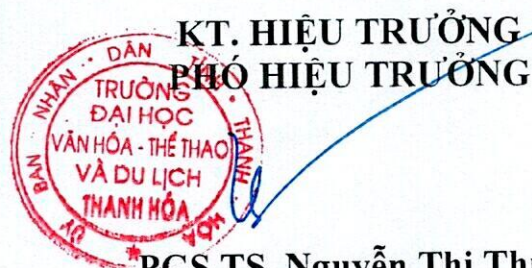 KT. HIỆU TRƯỞNG
PHÓ HIỆU TRƯỞNG
ỦY BAN NHÂN DÂN THANH HÓA
TRƯỜNG
ĐẠI HỌC
VĂN HÓA - THỂ THAO
VÀ DU LỊCH
THANH HÓA
PGS.TS. Nguyễn Thị